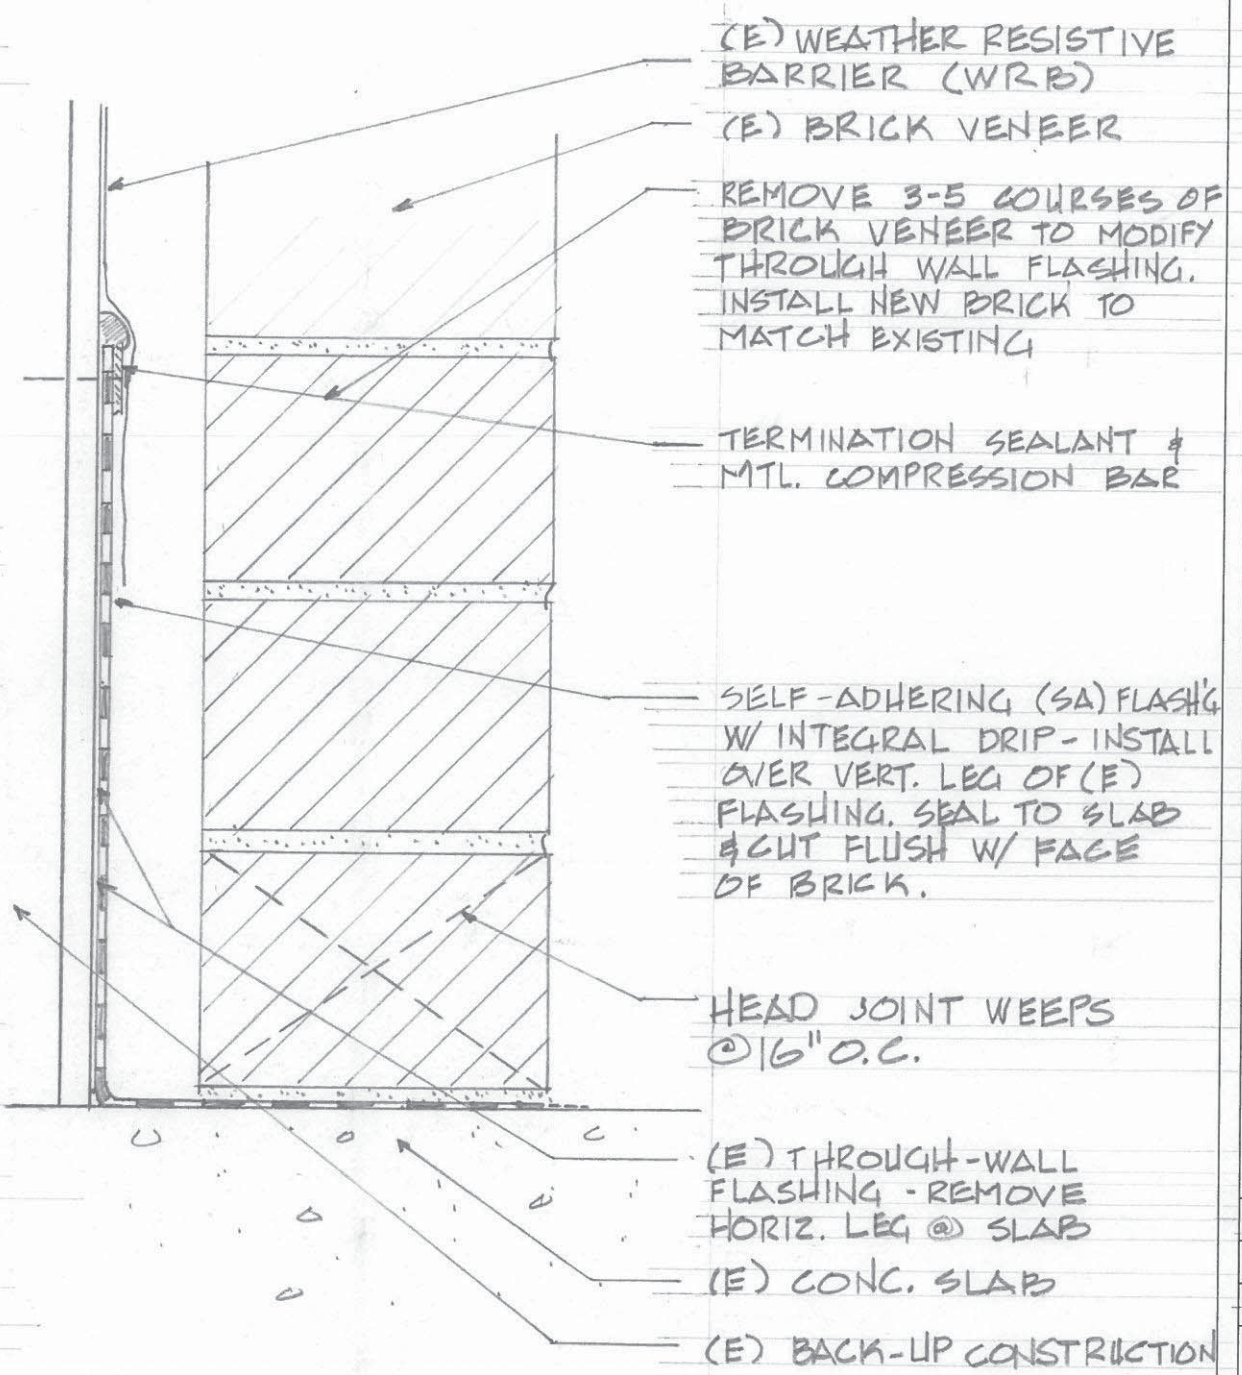 (E) WEATHER RESISTIVE
BARRIER (WRB)
(E) BRICK VENEER
REMOVE 3-5 COURSES OF
BRICK VENEER TO MODIFY
THROUGH WALL FLASHING.
INSTALL NEW BRICK TO
MATCH EXISTING
TERMINATION SEALANT &
MTL. COMPRESSION BAR
SELF-ADHERING (SA) FLASH'G
W/ INTEGRAL DRIP - INSTALL
OVER VERT. LEG OF (E)
FLASHING. SEAL TO SLAB
& CUT FLUSH W/ FACE
OF BRICK.
HEAD JOINT WEEPS
@ 16" O.C.
(E) THROUGH-WALL
FLASHING - REMOVE
HORIZ. LEG @ SLAB
(E) CONC. SLAB
(E) BACK-UP CONSTRUCTION